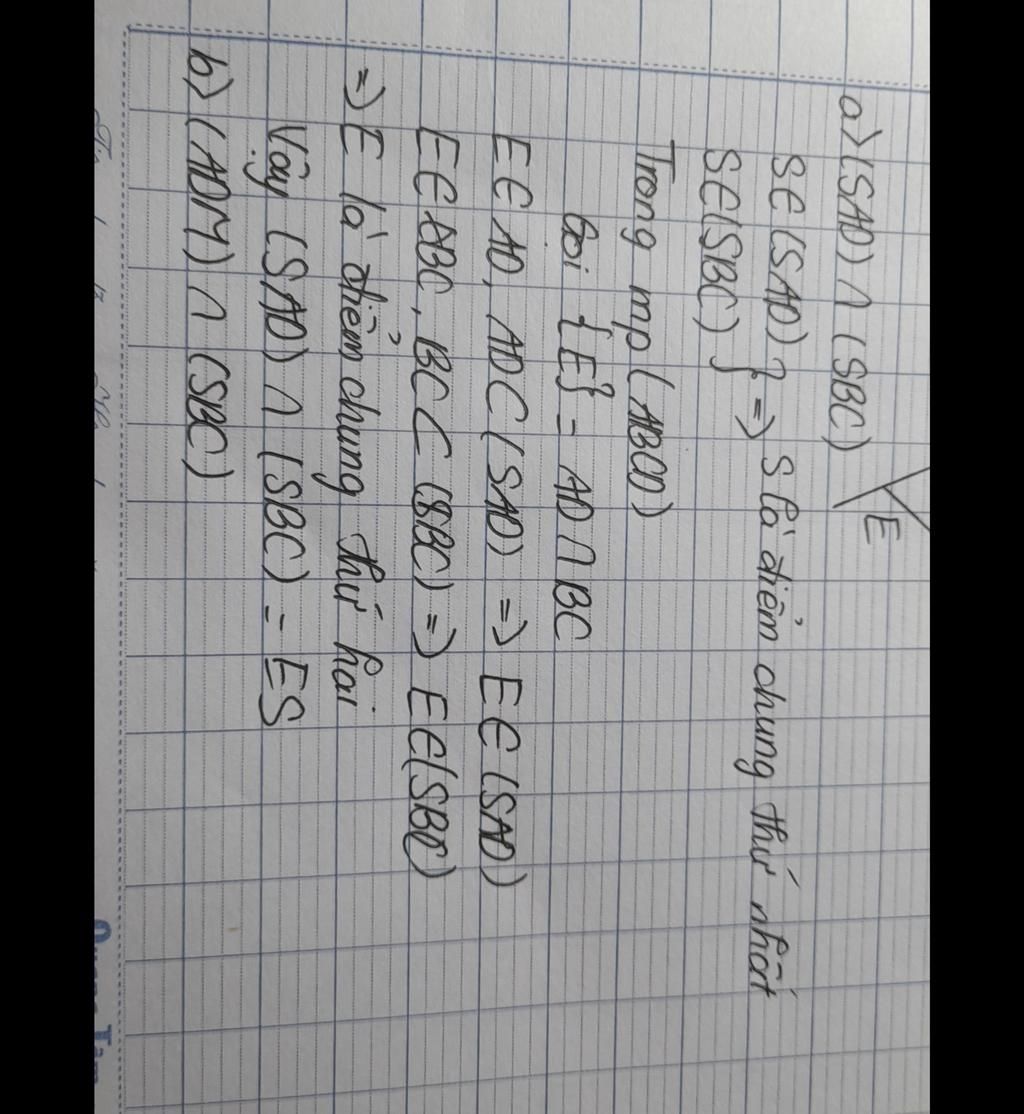 E
a) (SAD) ∩ (SBC)
S ∈ (SAD) } => S là điểm chung thứ nhất
S ∈ (SBC) }
Trong mp (ABCD)
Gọi {E} = AD ∩ BC
E ∈ AD, AD ⊂ (SAD) => E ∈ (SAD)
E ∈ BC, BC ⊂ (SBC) => E ∈ (SBC)
=> E là điểm chung thứ hai
Vậy (SAD) ∩ (SBC) = ES
b) (ADM) ∩ (SBC)